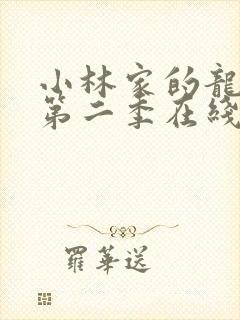 小林家的龍
第二季在綫
羅華送